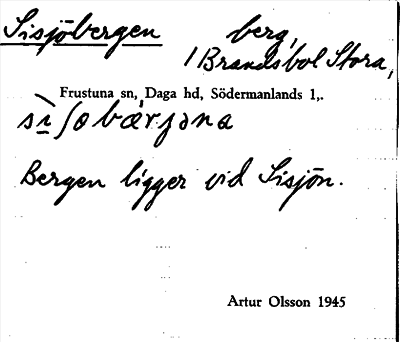 Sisjöbergen berg,
1 Brandsbol Stora,
Frustuna sn, Daga hd, Södermanlands l,.
sìʃobærjana
Bergen ligger vid Sisjön.
Artur Olsson 1945